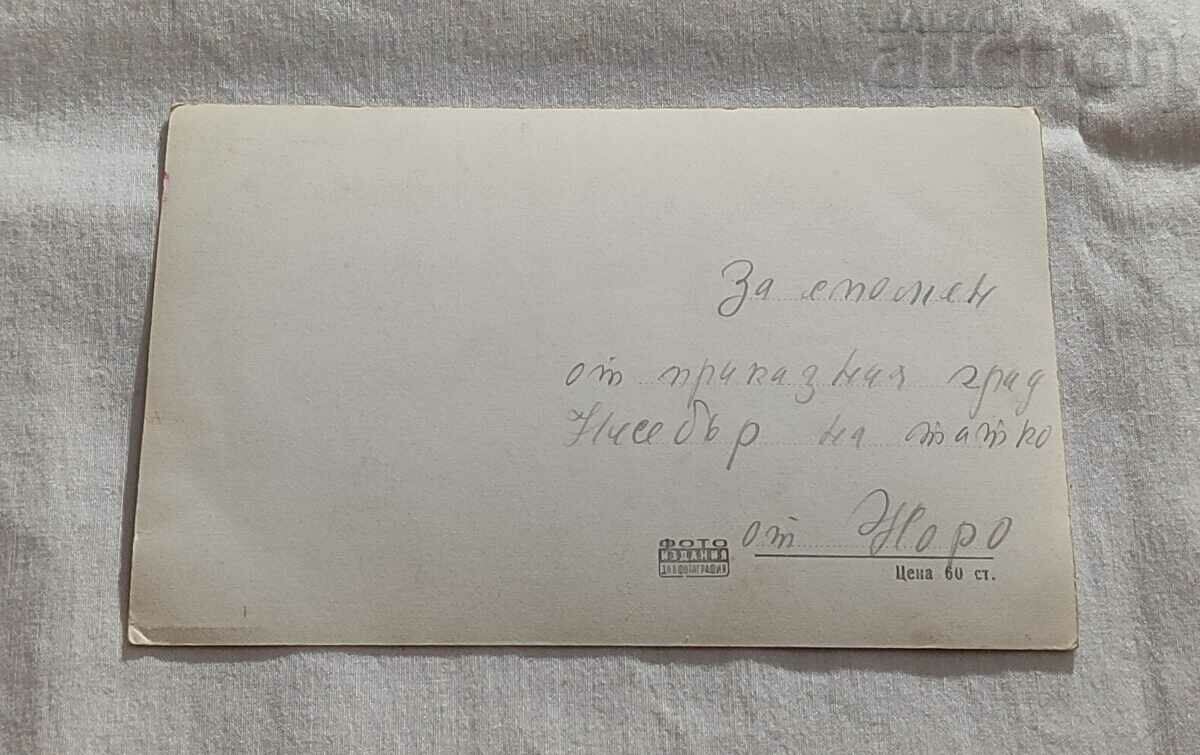 За спомен
от приказния град
Нисебър на татко
от Жоро
ФОТО
ИЗДАНИЯ
ДПФОТОГРАФИЯ
Цена 60 ст.